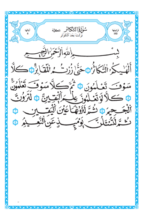 سُورَةُ التَّكَاثُرِ
بِسْمِ اللَّهِ الرَّحْمَٰنِ الرَّحِيمِ
أَلْهَىٰكُمُ ٱلتَّكَاثُرُ ۝ حَتَّىٰ زُرْتُمُ ٱلْمَقَابِرَ ۝ كَلَّا
سَوْفَ تَعْلَمُونَ ۝ ثُمَّ كَلَّا سَوْفَ تَعْلَمُونَ ۝
كَلَّا لَوْ تَعْلَمُونَ عِلْمَ ٱلْيَقِينِ ۝ لَتَرَوُنَّ
ٱلْجَحِيمَ ۝ ثُمَّ لَتَرَوُنَّهَا عَيْنَ ٱلْيَقِينِ ۝
ثُمَّ لَتُسْـَٔلُنَّ يَوْمَئِذٍ عَنِ ٱلنَّعِيمِ ۝